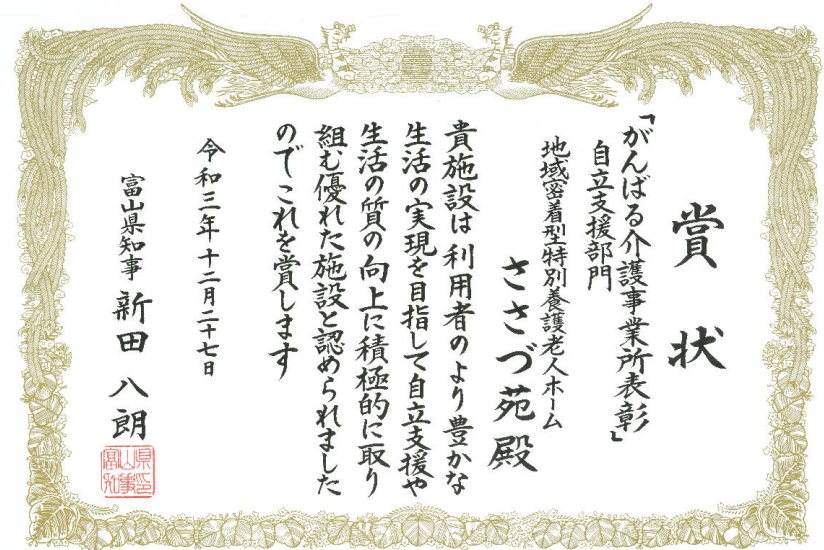 賞状
「がんばる介護事業所表彰」
自立支援部門
地域密着型特別養護老人ホーム
ささづ苑殿
貴施設は利用者のより豊かな
生活の実現を目指して自立支援や
生活の質の向上に積極的に取り
組む優れた施設と認められました
のでこれを賞します
令和三年十二月二十七日
富山県知事 新田八朗
富山県知事印